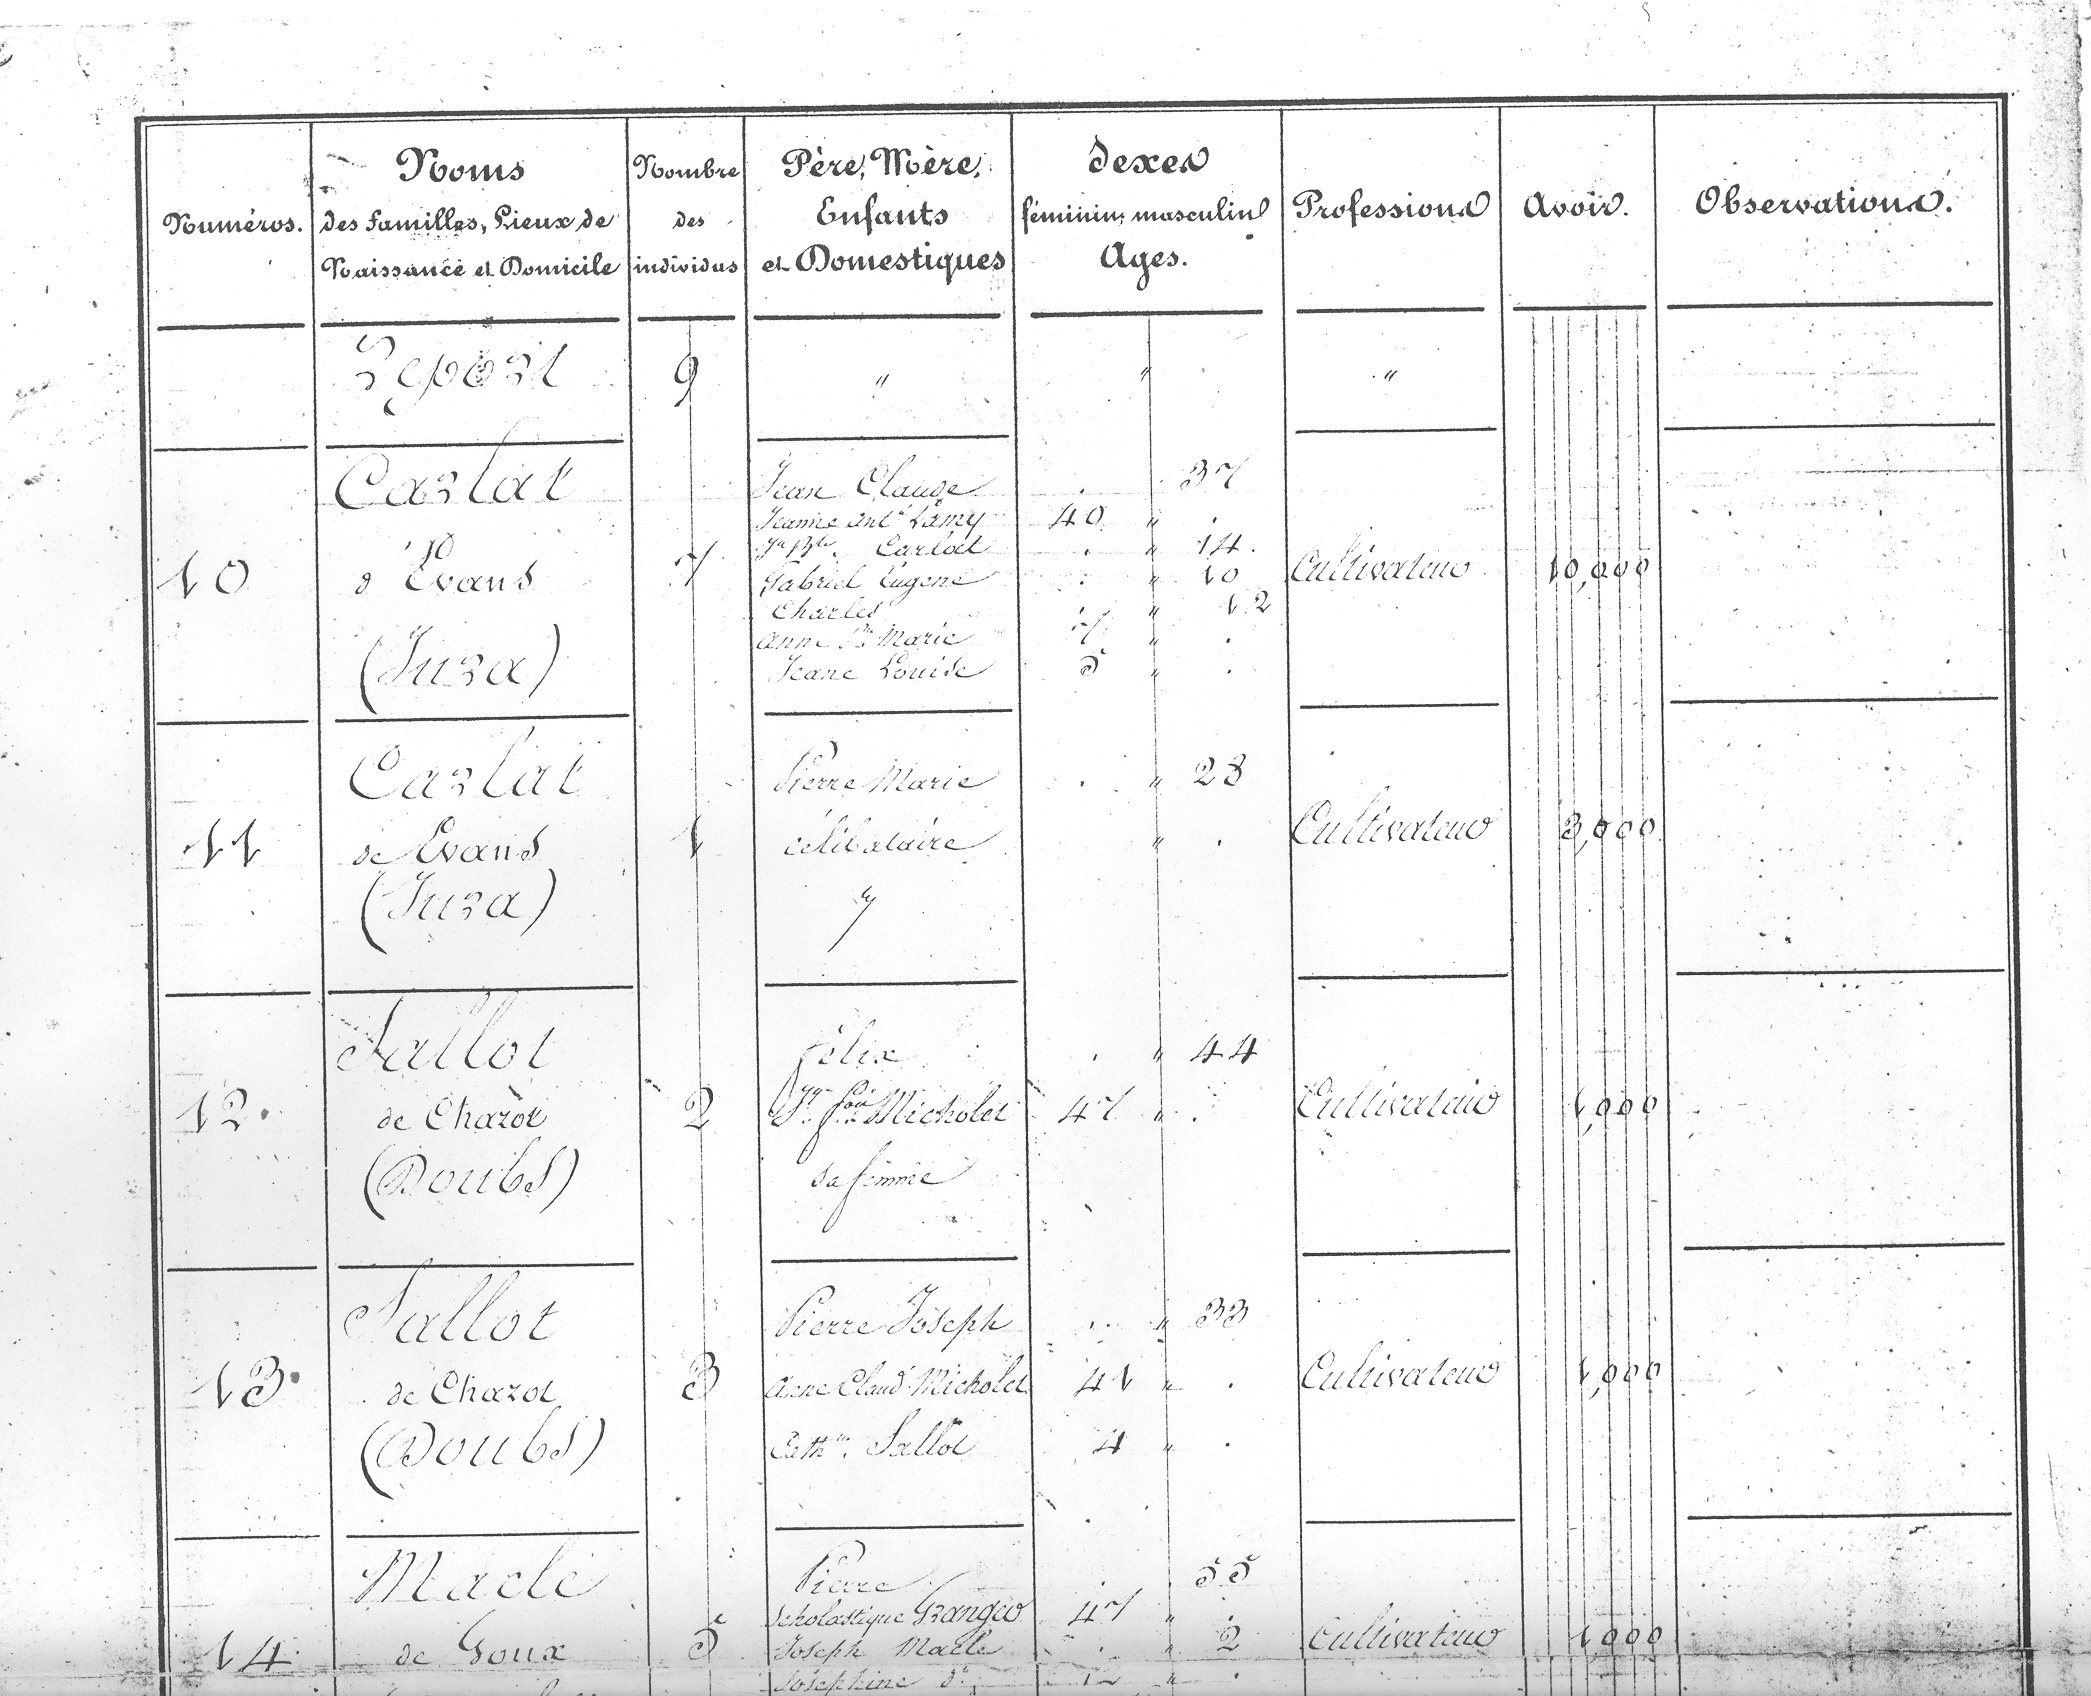 Numéros.
Noms
des Familles, Lieux de
Naissance et Domicile
Nombre
des
individus
Père, Mère,
Enfants
et Domestiques
Sexes
féminin, masculin
Ages.
Professions
Avoir.
Observations.
Report 9 " " "
10
Carlat
d'Evans
(Jura)
7
Jean Claude . 37
Jeanne Ant.e Lamy 40 " .
Jn Bte. Carlat . " 14.
Gabriel Eugene . " 10
Charles " 12
Anne Marie 7 " .
Jeane Louise 5 " .
Cultivateur
10,000
11
Carlat
de Evans
(Jura)
1
Pierre Marie . " 23
célibataire " .
"
Cultivateur
3,000
12.
Sallot
de Chazot
(Doubs)
2
félix . " 44
Micholet 47 " .
sa femme
Cultivateur
1,000
13.
Sallot
de Chazot
(Doubs)
3
Pierre Joseph . " 33
Anne Claud. Micholet 41 " .
Cath.ne Sallot 4 " .
Cultivateur
1,000
14.
Maclé
de Goux
5
Pierre . . 55
Scholastique Granger 47 " .
Joseph Maclé . " 2
Josephine d.o 12 " .
Cultivateur
1,000